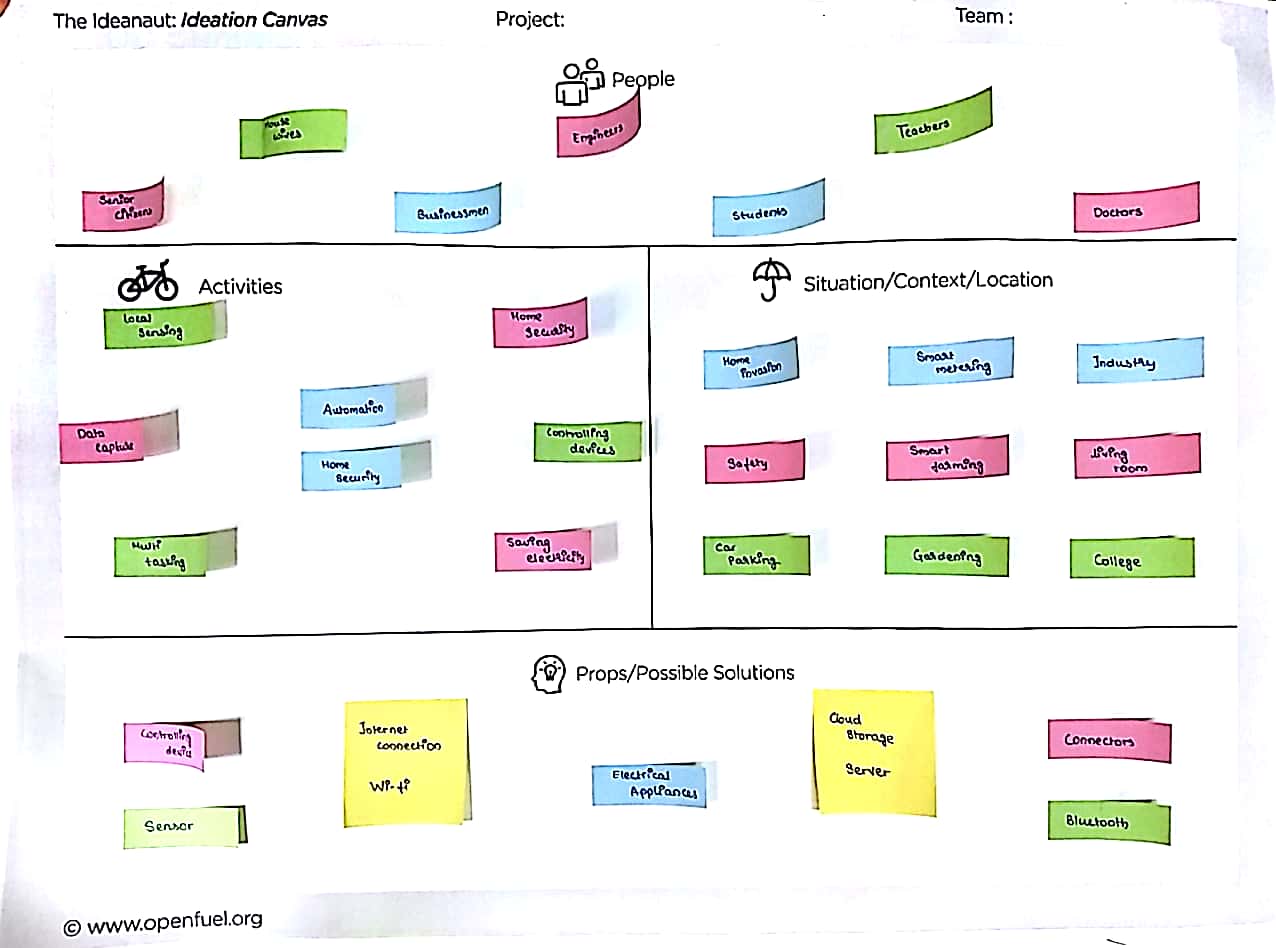 The Ideanaut: Ideation Canvas
Project:
Team :
People
House
wives
Engineers
Teachers
Senior
citizens
Businessmen
Students
Doctors
Activities
Local
Sensing
Home
Security
Automation
Data
capture
Controlling
devices
Home
Security
Multi
tasking
Saving
electricity
Situation/Context/Location
Home
invasion
Smart
metering
Industry
Safety
Smart
farming
living
room
Car
Parking
Gardening
College
Props/Possible Solutions
Controlling
device
Internet
connection
Wi-fi
Electrical
Appliances
Cloud
Storage
Server
Connectors
Sensor
Bluetooth
© www.openfuel.org